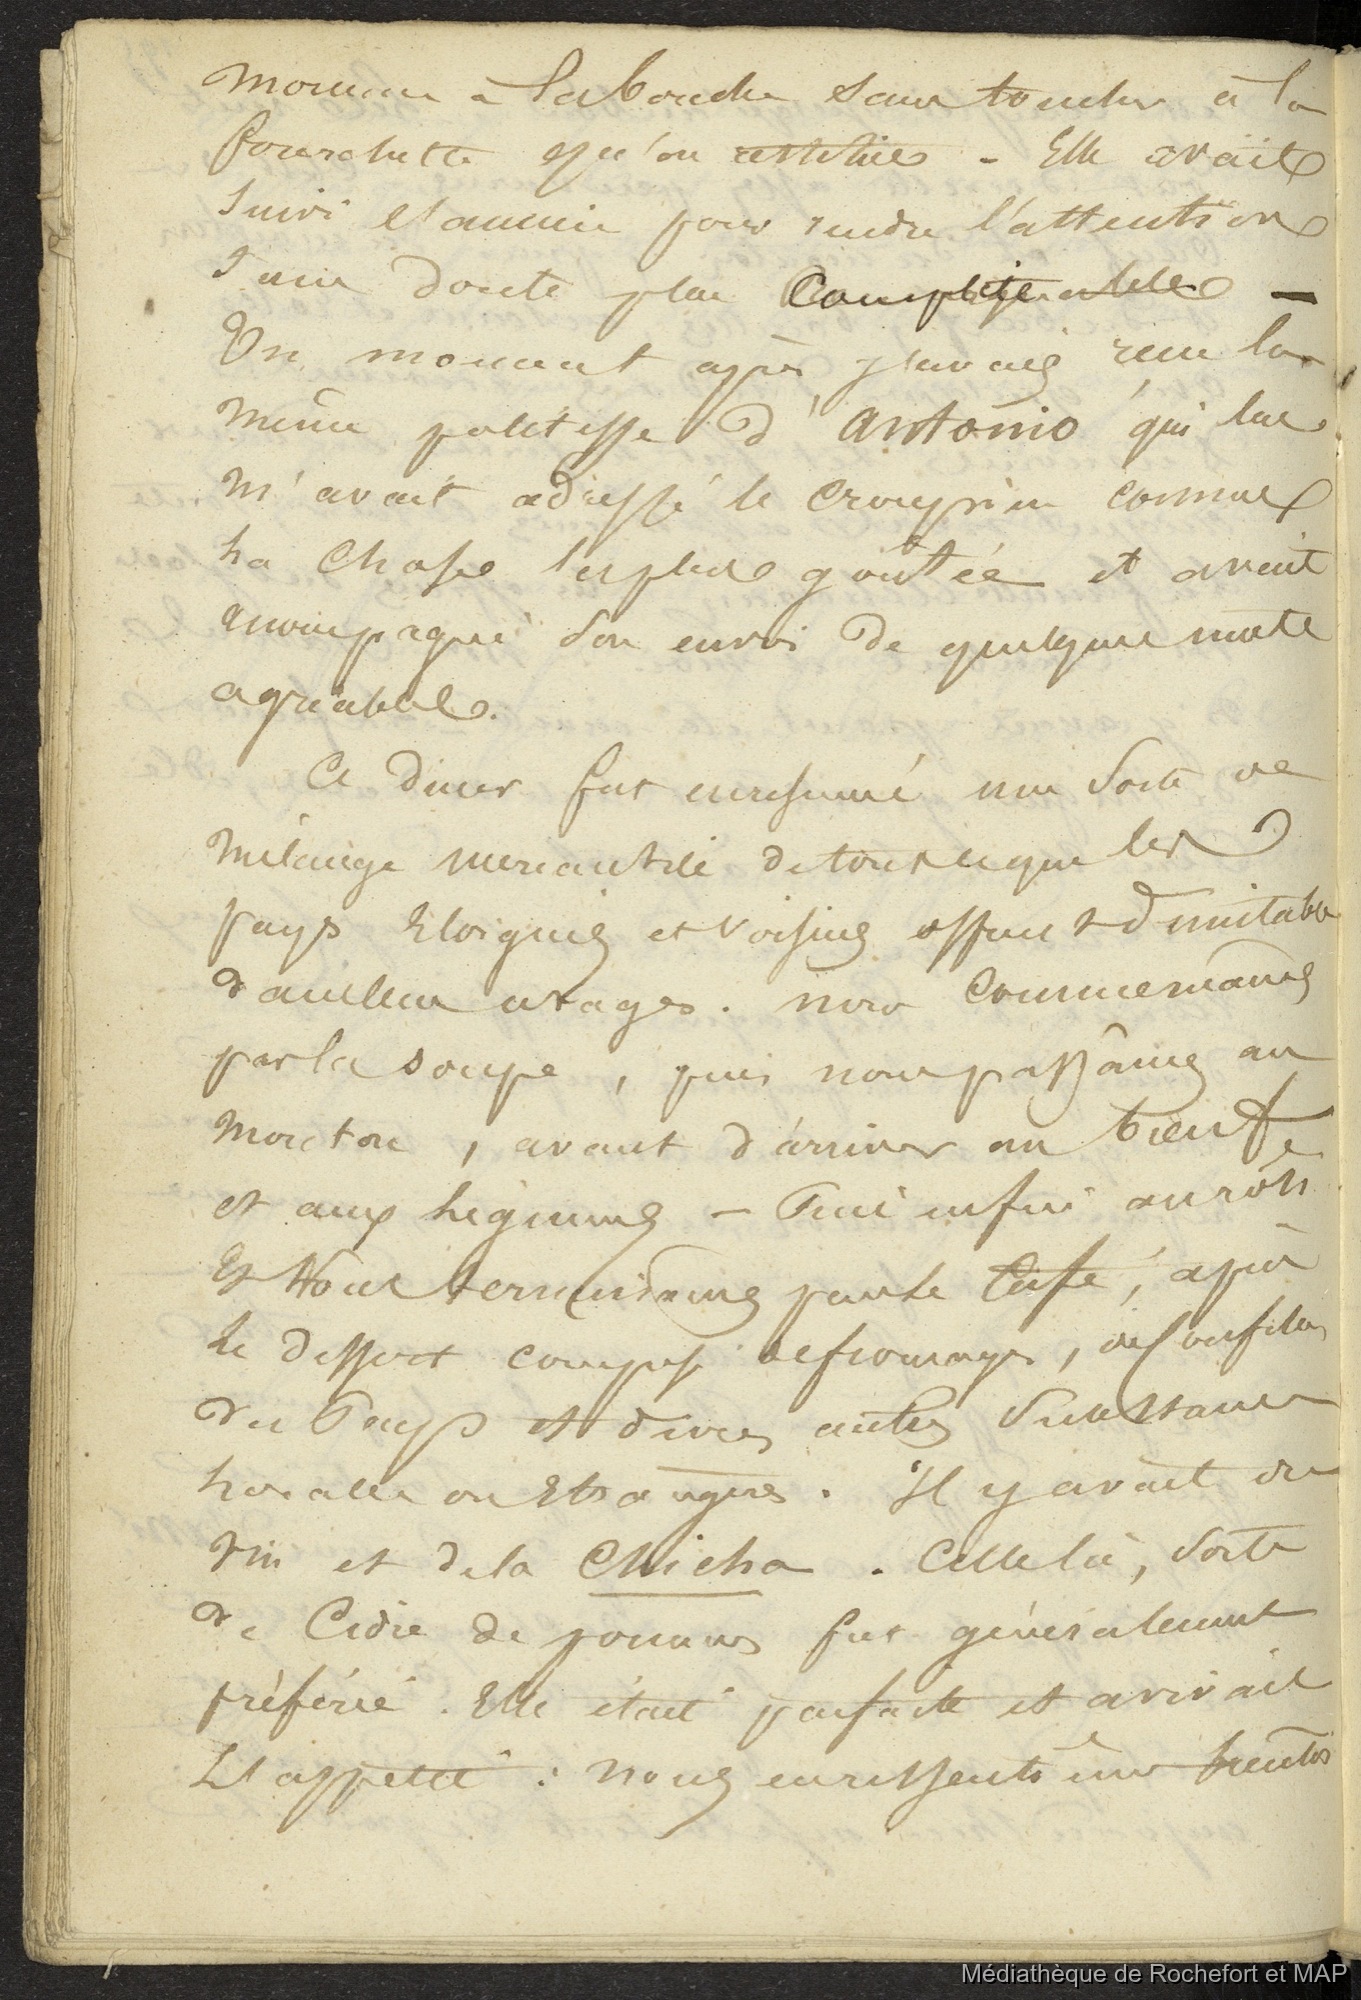 morceau à la bouche sans toucher à la
fourchette qu'on restitue - Elle avait
suivi et aucuni pour rendre l'attention
sans doute plus Complète -
Un moment après j'avais recu la
même politesse d'Antonio qui lui
m'avait adressé le croupion comme
la chose la plus goûtée et avait
accompagné son envoi de quelques mots
agréables.
Ce diner fut en résumé une sorte de
mélange de tout ce que les
pays Eloignés et Voisins offrent d'imitable
d'ailleurs usages. nous commençames
par la soupe, puis nous passâmes au
mouton, avant d'arriver au boeuf
et aux légumes - Puis enfin au rôti
Et Nous terminames par le Café, après
le dessert composé de fromages, de Confitures
du Pays et divers autres substances
locales ou Etrangères. Il y avait du
vin et de la Chicha. Celle là, sorte
de Cidre de pommes fut généralement
préférée. Elle était parfaite et avivait
L'appetit : nous en ressentimes bientôt
Médiathèque de Rochefort et MAP